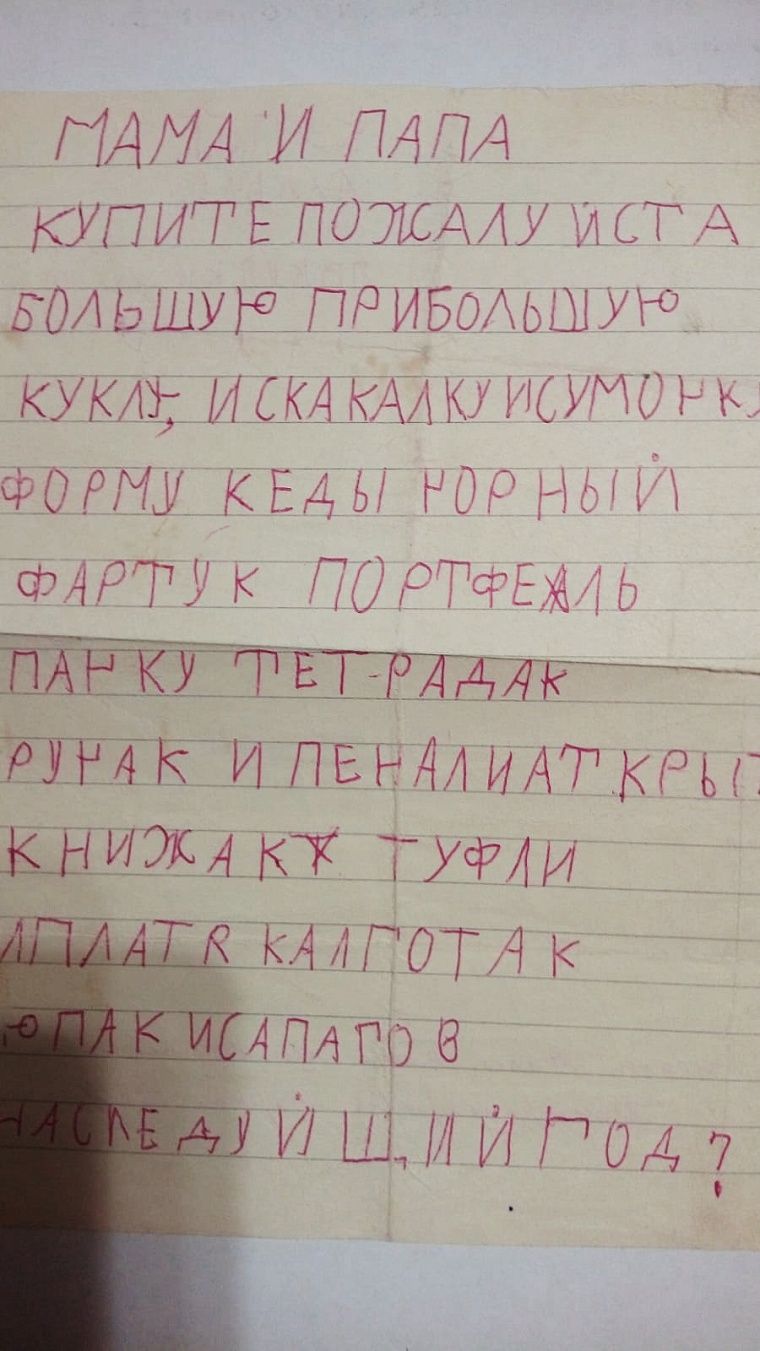 МАМА И ПАПА
КУПИТЕ ПОЖАЛУЙСТА
БОЛЬШУЮ ПРИБОЛЬШУЮ
КУКЛУ, И СКАКАЛКУ ИСУМОЧКУ
ФОРМУ КЕДЫ ЧОРНЫЙ
ФАРТУК ПОРТФЕЛЬ
ПАЧКУ ТЕТ-РАДАК
РУЧАК И ПЕНАЛИАТКРЫТ
КНИЖАК ТУФЛИ
ПЛАТЯ КАЛГОТАК
ЮПАК ИСАПАГОВ
НАСЛЕДУЙЩИЙ ГОД?